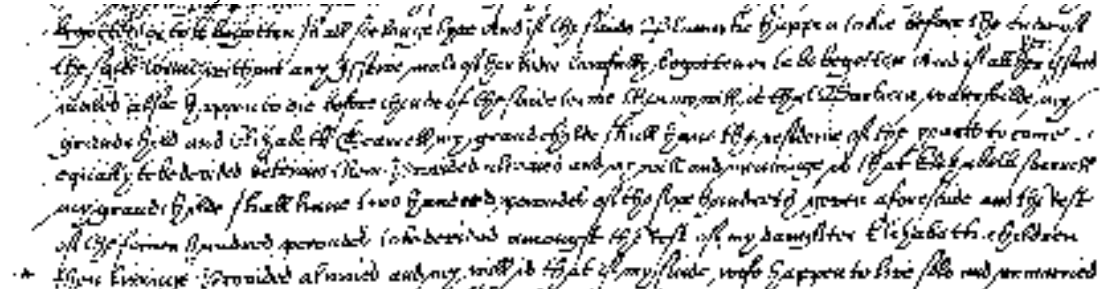 begotten or to be begotten shall for ever have And if the saide Blanche happen to die before the ende of
the saide terme without any yssue male of her bodie lawfully begotten or to be begotten And if all her yssue
males alsoe happen to die before thende of the saide terme then my will is that Barbara Waterhilde, my
grandechild and Elizabeth my grandchilde shall have the residue of the yeares to come
equally to be devided betweene them Provided alwaies and my will and meaninge is that Elizabeth
my grandchilde shall have two hundred poundes of the five hundreth given aforesaide and the rest
of the summe hundred poundes to be devided amongst the rest of my daughter Elizabeth children
then livinge Provided alwaies and my will is that if my saide wife happen to live sole and unmaried